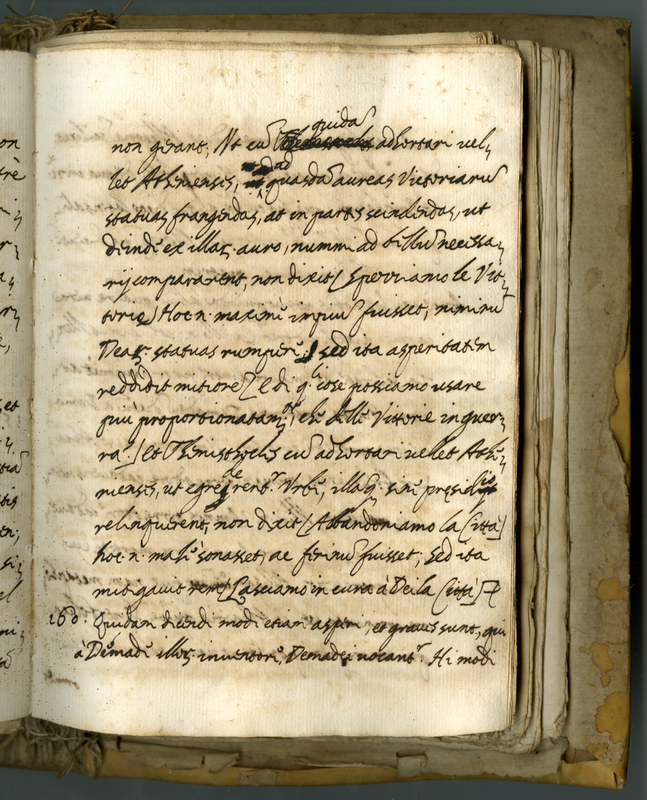 non gerant; Ut cū quidā adhortari uel„
let Atheniensis, ad quasdā aureas Victoriarū
statuas frangendas, at in partes scindendas, ut
deinde ex illaꝝ auro, nummi ad bellū necessa„
rij compararent, non dixit [Spezziamo le Vit„
torie] Hoc n. maximè impiū fuisset, nimirū
Deaꝝ statuas rumpere: sed ita asperitatem
reddidit mitiorē [E di q.li cose possiamo usare
più proportionatam.te, che delle Vittorie in guer„
ra.] et Themisthocles cū adhortari uellet Athe„
nienses, ut egrederent.r Urbe, illaq. sine presidio
relinquerent, non dixit [Abbandoniamo la Città]
hoc n. malè sonasset, ac ferinū fuisset, Sed ita
mitigauit rem [Lasciamo in cura à Dei la Città]
160. Quidam dicendi modi etiam asperi, et graues sunt, qui
à Demade illoꝝ inuentore, Demadei uocant.r Hi modi